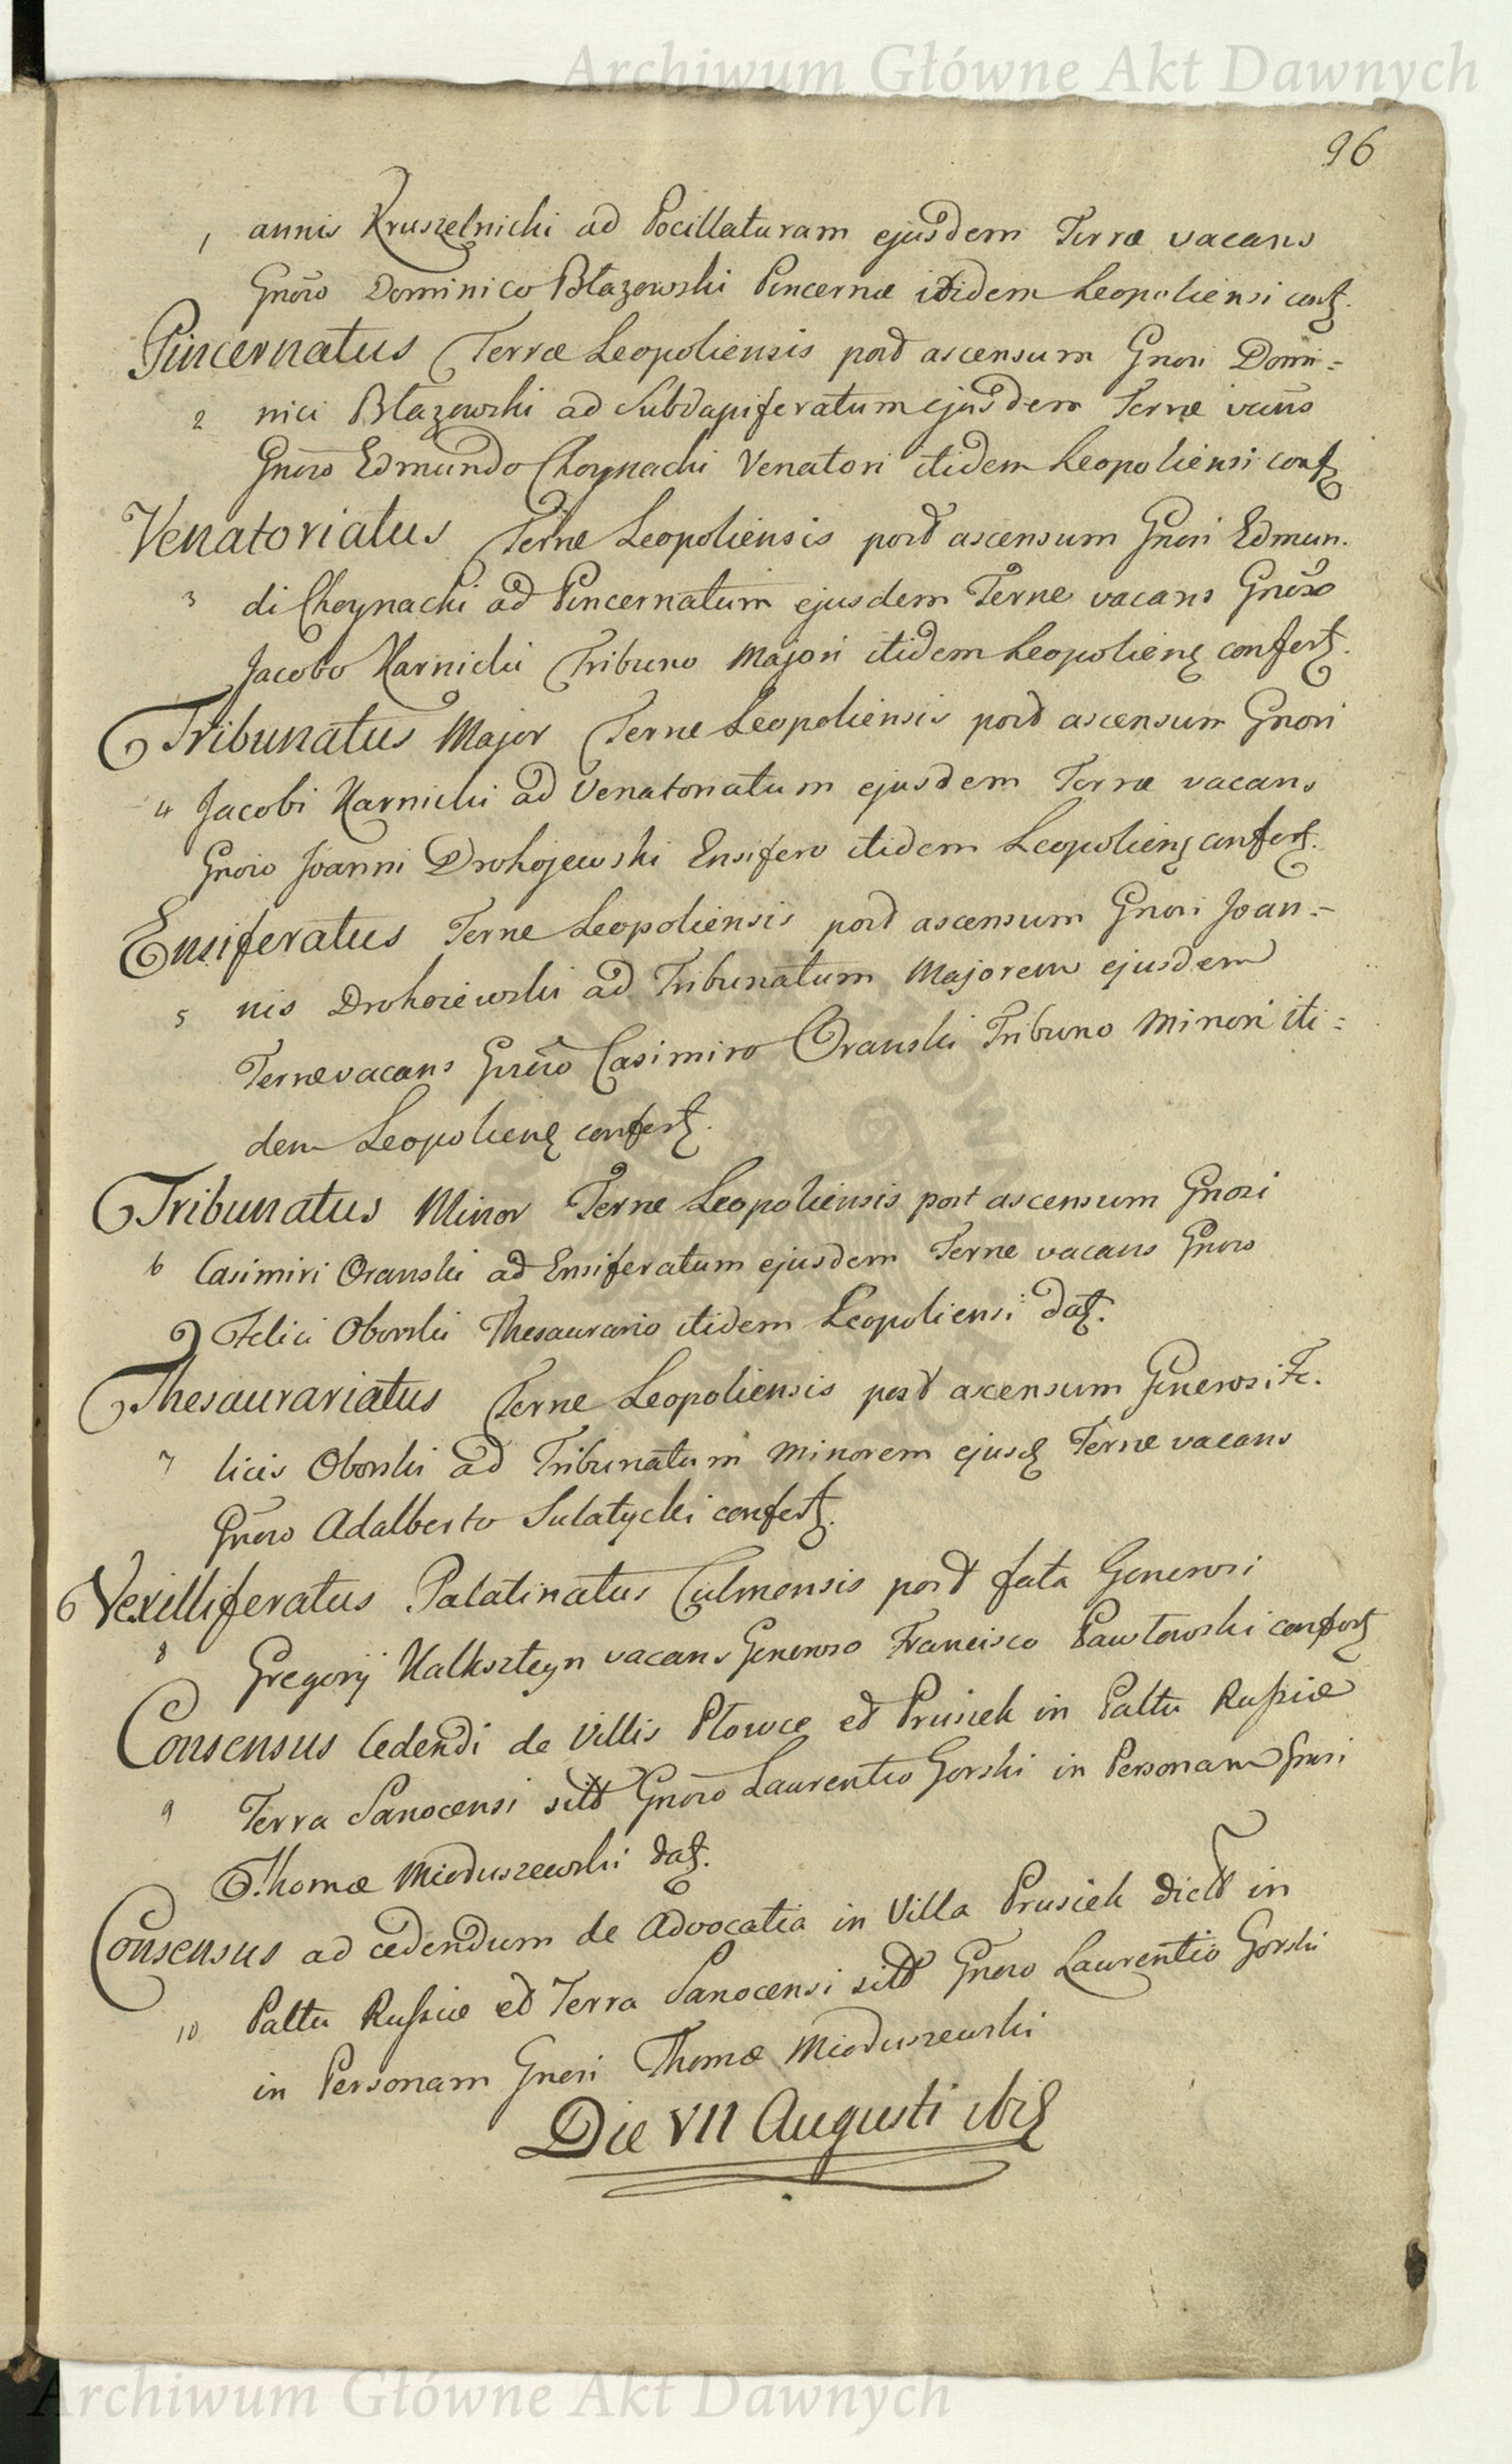 Archiwum Główne Akt Dawnych
96
1 annis Kruszelnicki ad Pocillaturam ejusdem Terræ vacans
Gnoso Dominico Błazowski Pincernæ itidem Leopoliensi conf.
Pincernatus Terræ Leopoliensis post ascensum Gnosi Domi=
2 nici Błazowski ad Subdapiferatum ejusdem Terræ vacans
Gnoso Edmundo Choynacki Venatori itidem Leopoliensi conf.
Venatoriatus Terræ Leopoliensis post ascensum Gnosi Edmun.
3 di Choynacki ad Pincernatum ejusdem Terræ vacans Gnoso
Jacobo Karnicki Tribuno Majori itidem Leopolien. confert.
Tribunatus Major Terræ Leopoliensis post ascensum Gnosi
4 Jacobi Karnicki ad Venatoriatum ejusdem Terræ vacans
Gnoso Joanni Drohojewski Ensifero itidem Leopolien. confert.
Ensiferatus Terræ Leopoliensis post ascensum Gnosi Joan=
5 nis Drohoiewski ad Tribunatum Majorem ejusdem
Terræ vacans Gnoso Casimiro Oranski Tribuno Minori iti=
dem Leopolien. confert.
Tribunatus Minor Terræ Leopoliensis post ascensum Gnosi
6 Casimiri Oranski ad Ensiferatum ejusdem Terræ vacans Gnoso
Felici Oborski Thesaurario itidem Leopoliensi dat.
Thesaurariatus Terræ Leopoliensis post ascensum Generosi Fe.
7 licis Oborski ad Tribunatum Minorem ejusd. Terræ vacans
Gnoso Adalberto Sulatycki confert.
Vexilliferatus Palatinatus Culmensis post fata Generosi
8 Gregorij Kalksteyn vacans Generoso Francisco Pawłowski confert
Consensus Cedendi de Villis Płowce et Prusiek in Paltu Russiæ
9 Terra Sanocensi sitt Gnoso Laurentio Gorski in Personam Gnosi
Thomæ Mioduszewski dat.
Consensus ad cedendum de Advocatia in Villa Prusiek dict in
10 Paltu Russiæ et Terra Sanocensi sitt Gnoso Laurentio Gorski
in Personam Gnosi Thomæ Mioduszewski
Die VII Augusti ibid
Archiwum Główne Akt Dawnych